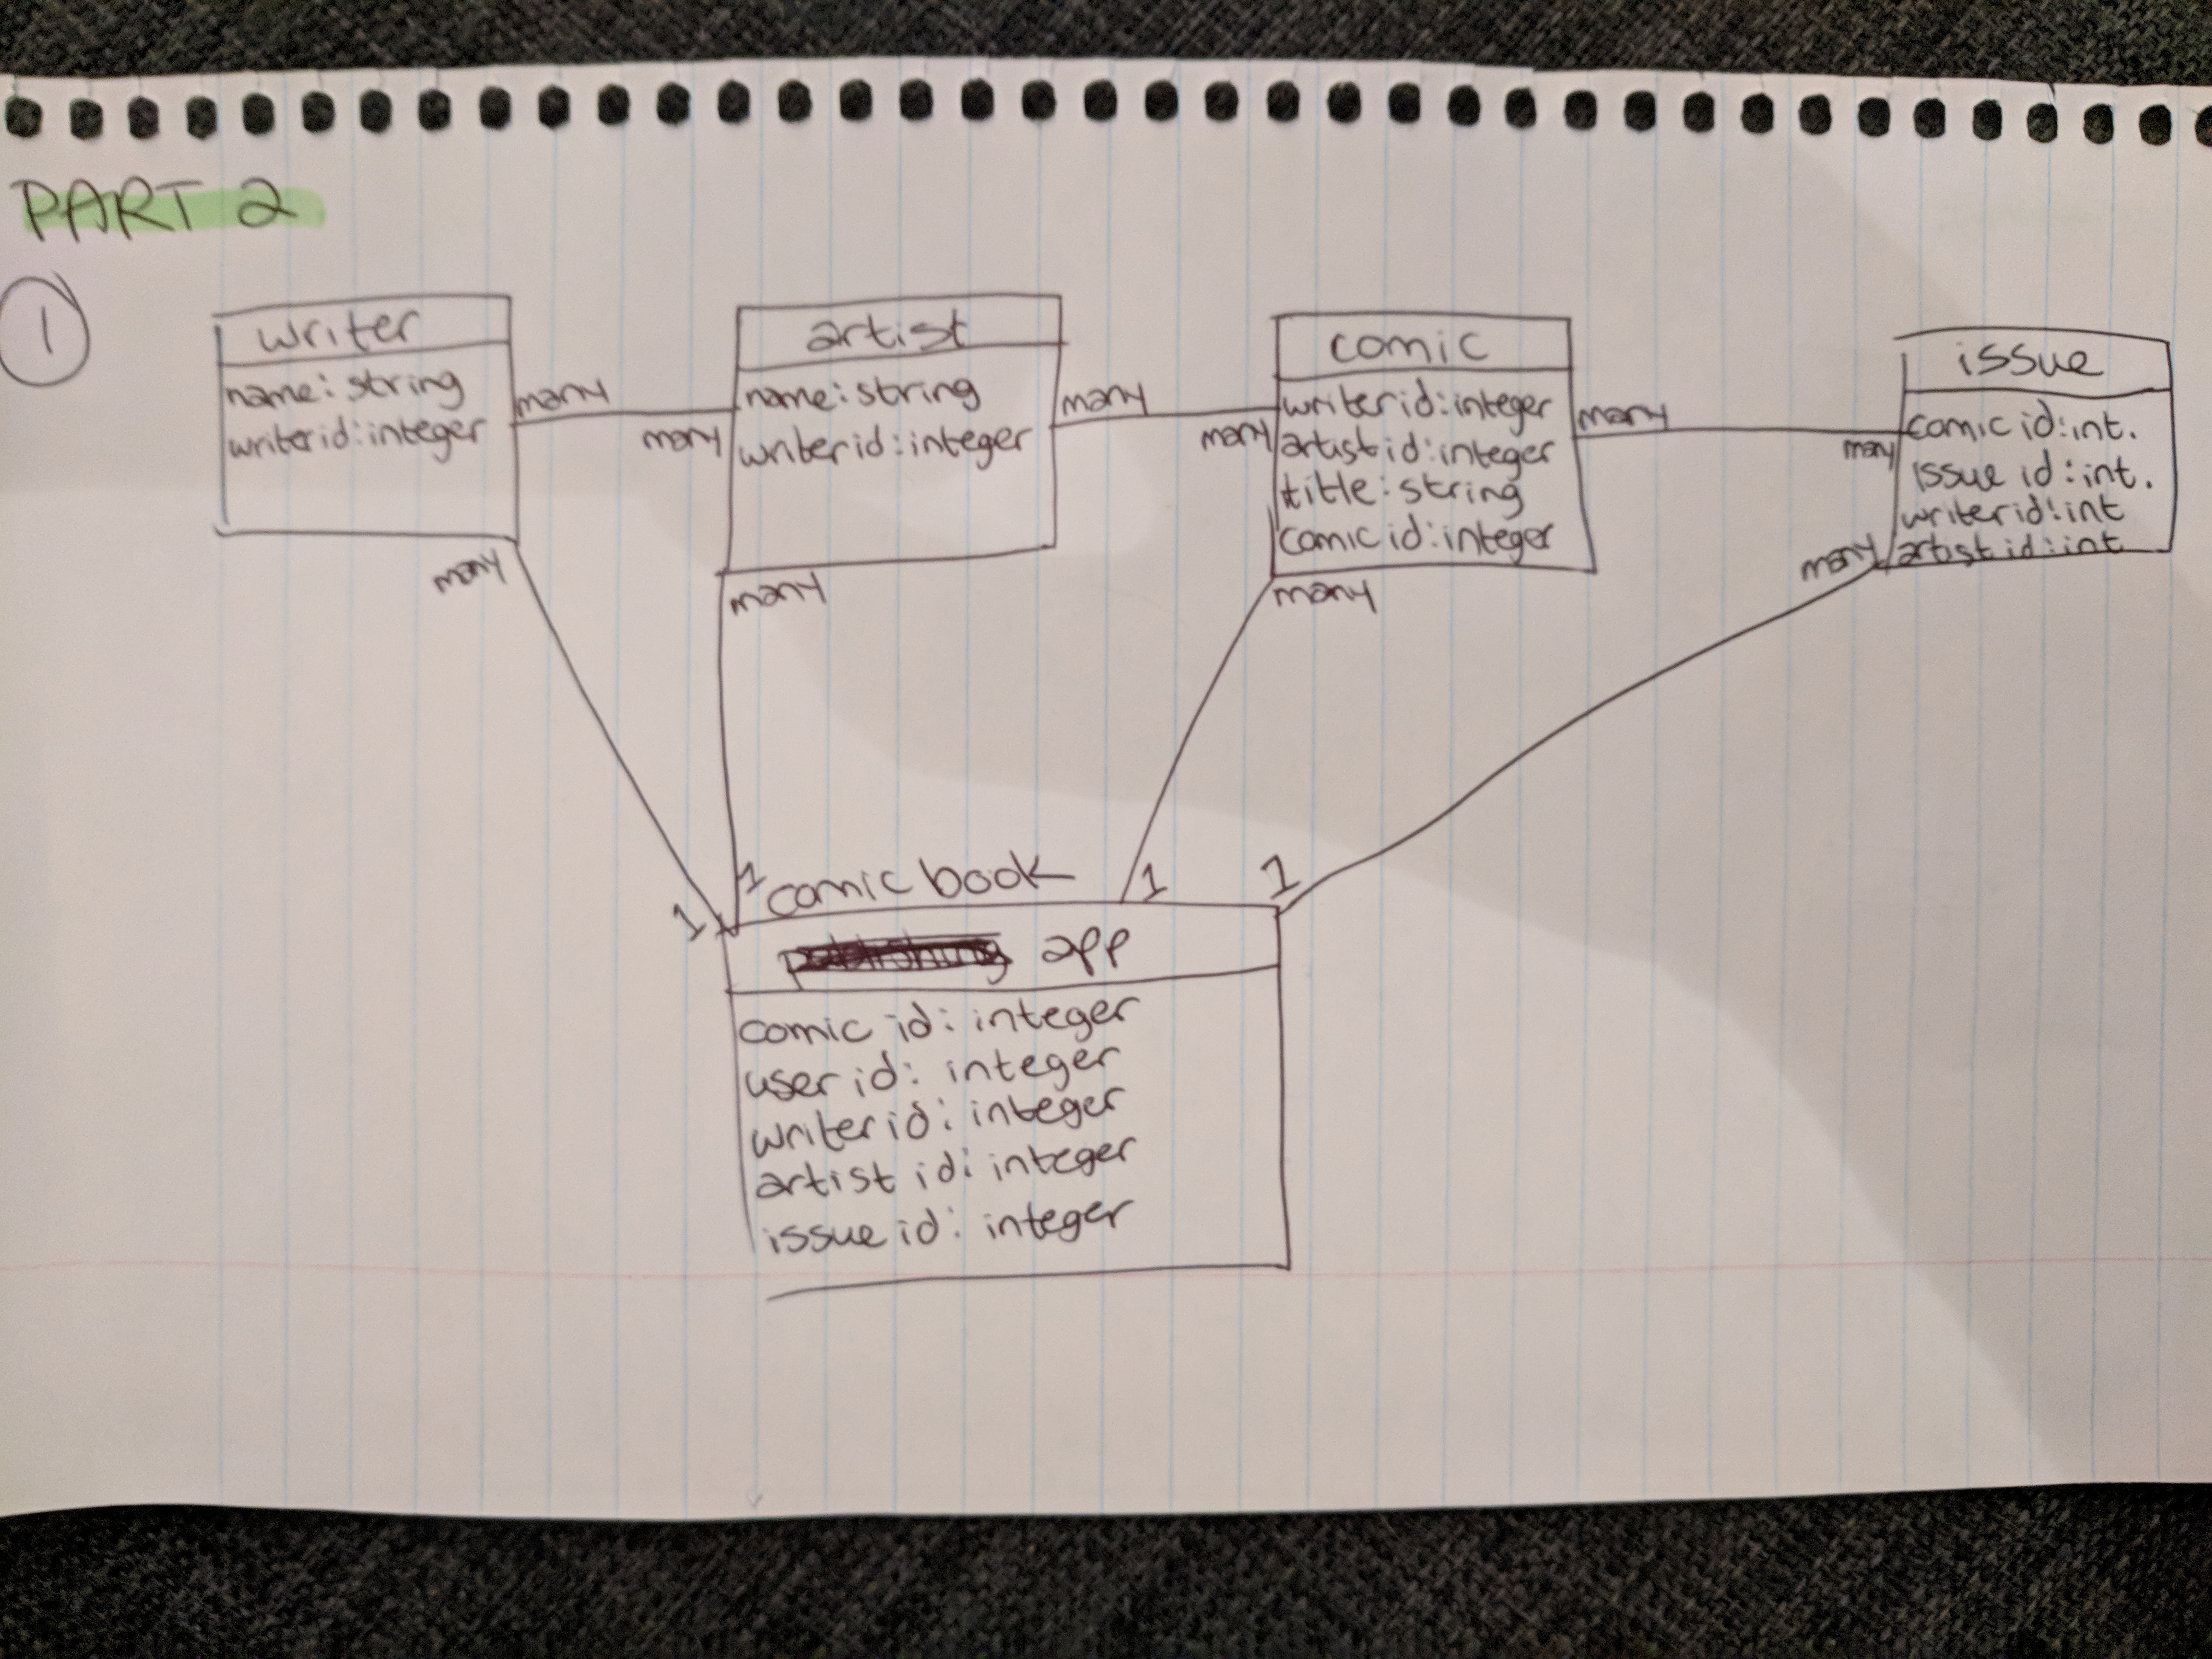 PART 2
1
writer
name: string
writer id: integer
many
many
many
artist
name: string
writer id: integer
many
many
many
comic
writer id: integer
artist id: integer
title: string
comic id: integer
many
many
many
issue
comic id: int.
issue id: int.
writer id: int
artist id: int
many
1
1
1
1
comic book
app
comic id: integer
user id: integer
writer id: integer
artist id: integer
issue id: integer